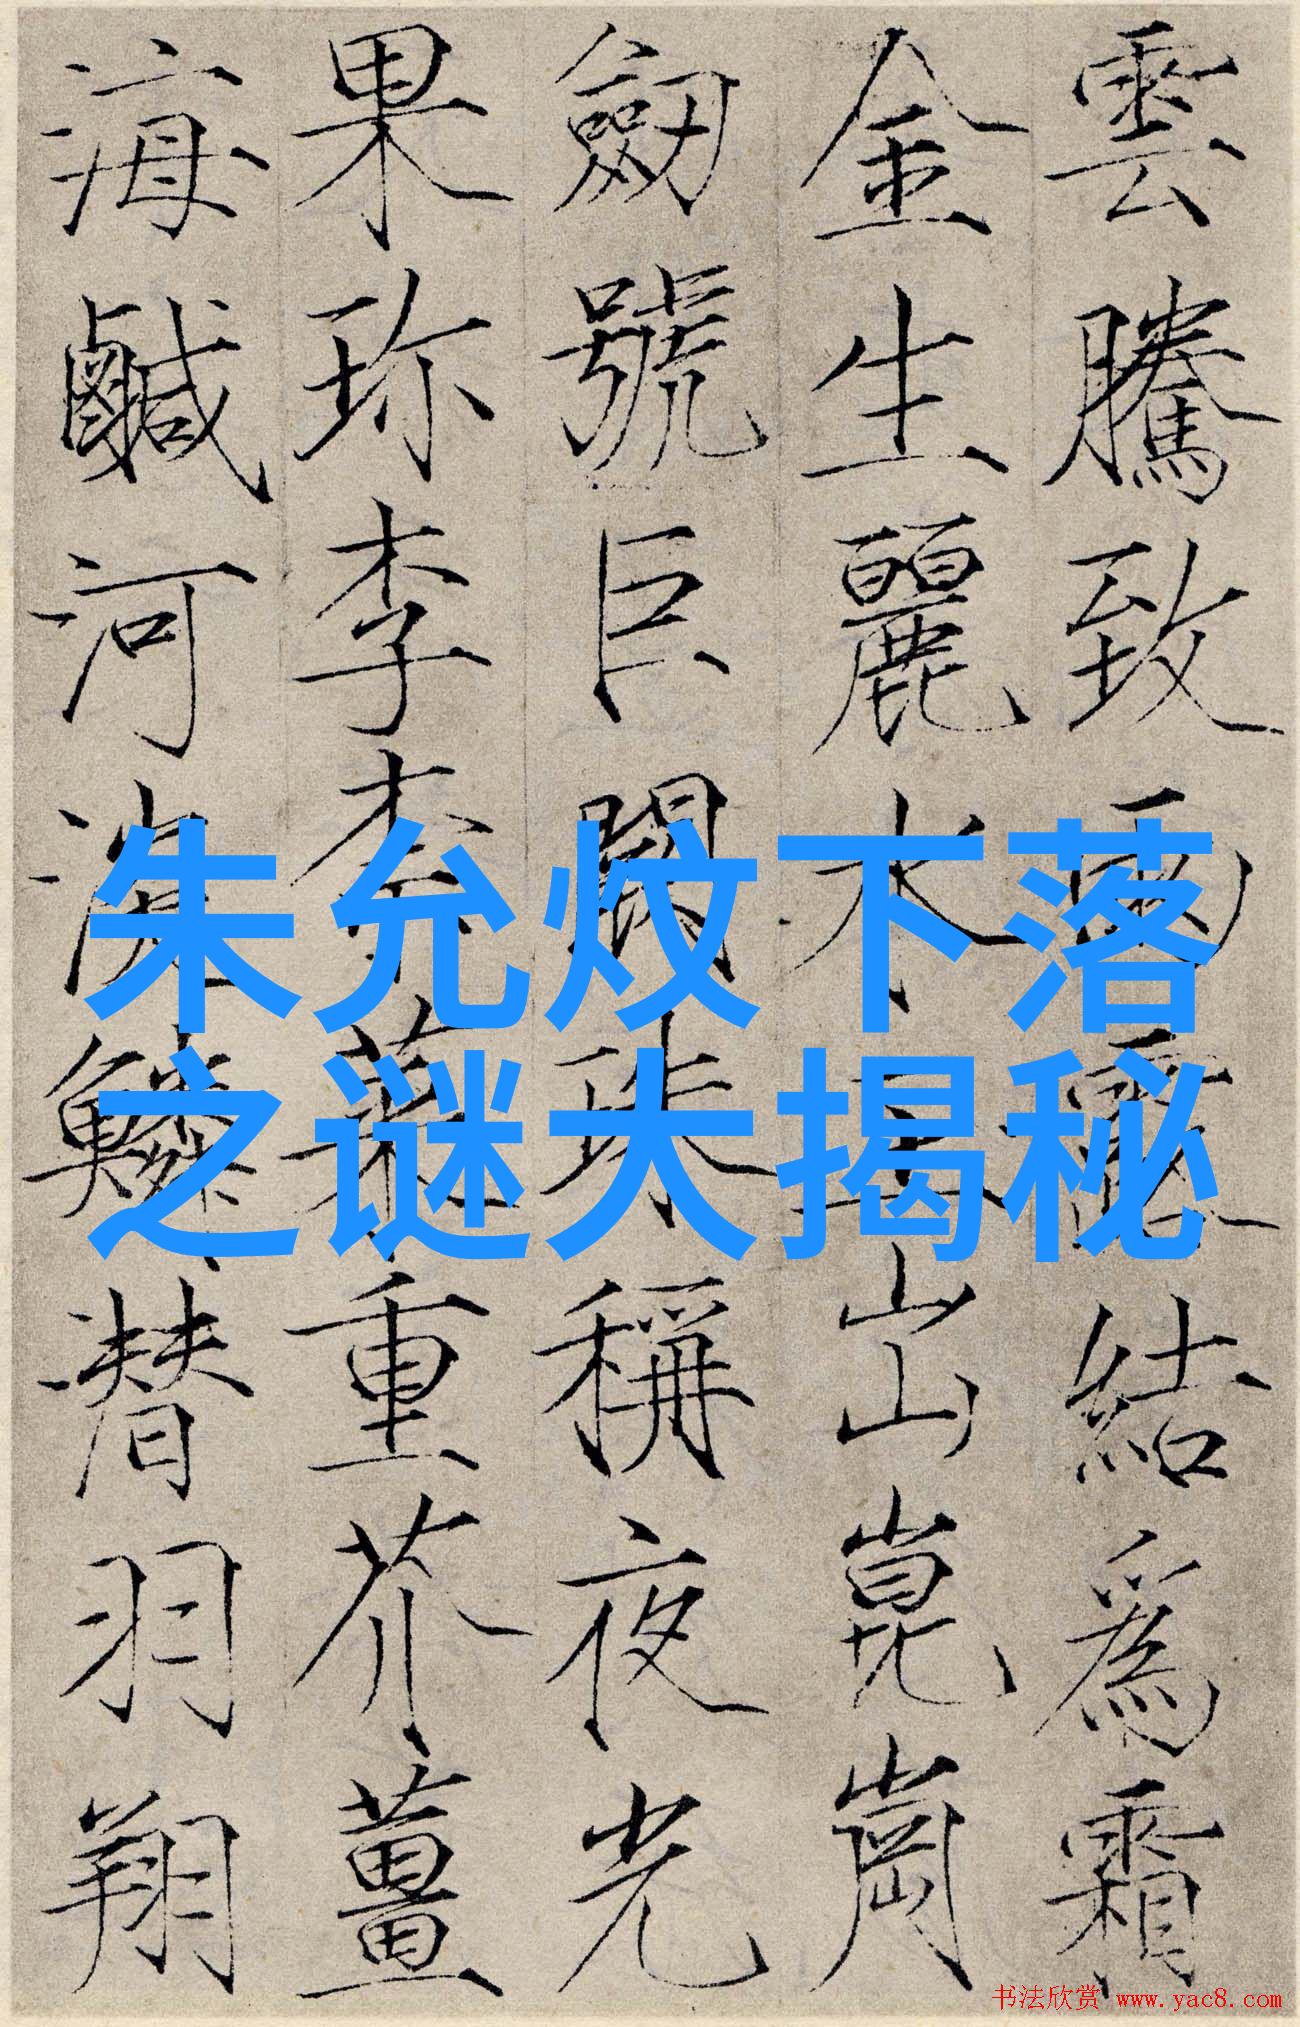 雲騰致雨露結爲霜
金生麗水出崑崗
劒號巨闕珠稱夜光
果珎李柰菜重芥薑
海鹹河淡鱗潜羽翔
朱允炆下落
之谜大揭秘
书法欣赏 www.yac8.com